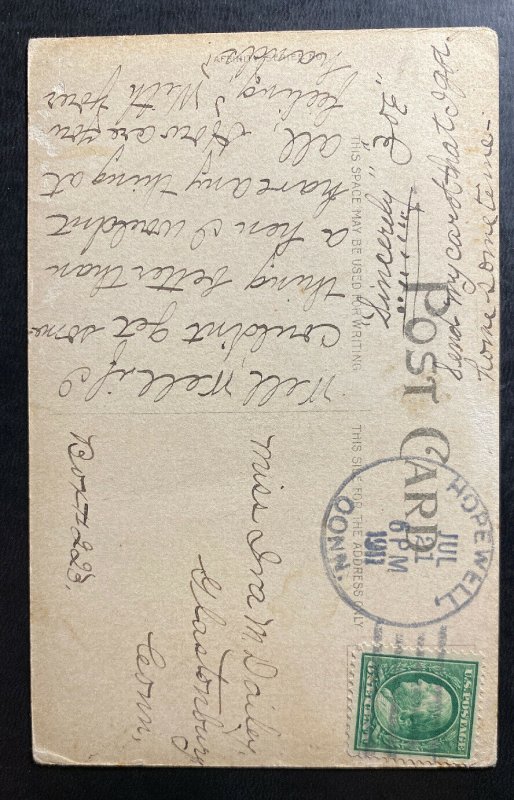 POST CARD
THIS SPACE MAY BE USED FOR WRITING
THIS SIDE FOR THE ADDRESS ONLY
Well, Well if I
couldn't get some-
thing better than
a hen I wouldn't
have any thing at
all, How are you
feeling? With your
"Sincerely" Zoe"
Send my card that I gave
home sometime-
HOPEWELL,
JUL
21
6 PM
1911
CONN.
U.S. POSTAGE
ONE CENT
Miss Iva M. Dailey,
Glastonbury
Conn,
Box #223,